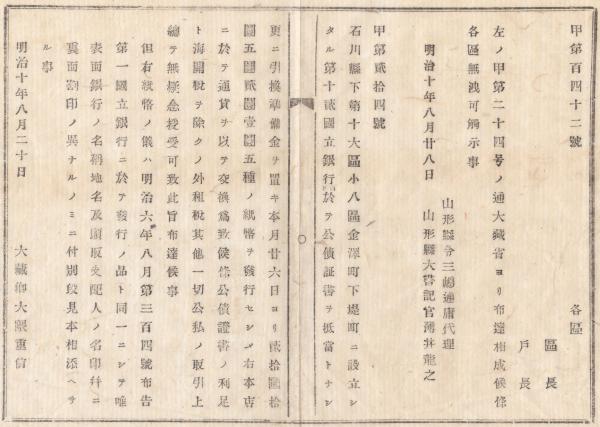 甲第百四十二號
各區
區長
戸長
左ノ甲第二十四号ノ通大藏省ヨリ布達相成候條
各區無洩可觸示事
山形縣令三島通庸代理
明治十年八月廿八日 山形縣大書記官薄井龍之
甲第貳拾四號
石川縣下第十大區小八區金澤町下堤町ニ設立シ
タル第十貳國立銀行於テ公債証書ヲ抵當トナシ
更ニ引換準備金ヲ置キ本月廿六日ヨリ貳拾圓拾
圓五圓貳圓壹圓五種ノ紙幣ヲ發行セシメ右本店
ニ於テ通貨ヲ以テ交換爲致候條公債證書ノ利足
ト海關税ヲ除クノ外租税其他一切公私ノ取引上
總テ無疑念授受可致此旨布達候事
但右紙幣ノ儀ハ明治六年八月第三百四號布告
第一國立銀行ニ於テ發行ノ品ト同一ニシテ唯
表面銀行ノ名稱地名及頭取支配人ノ名印幷ニ
裏面割印ノ異ナルノミニ付別段見本相添ヘサ
ル事
明治十年八月二十日 大藏卿大隈重信